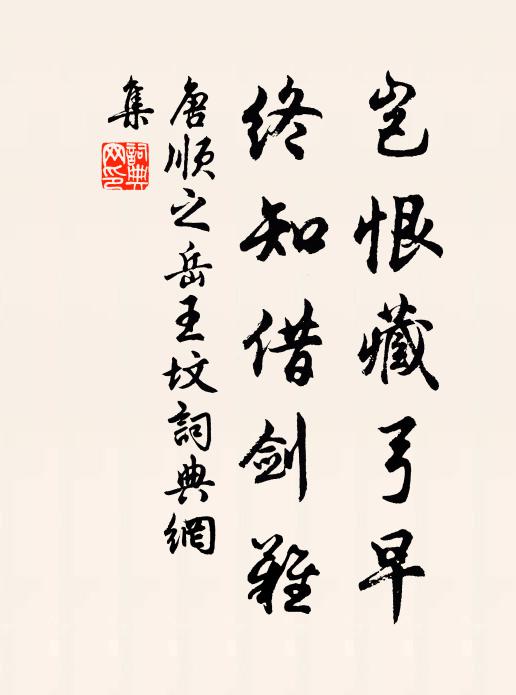 岂恨藏弓早
终知借剑難
唐顺之岳王坟詞典網
集
詞典
网印